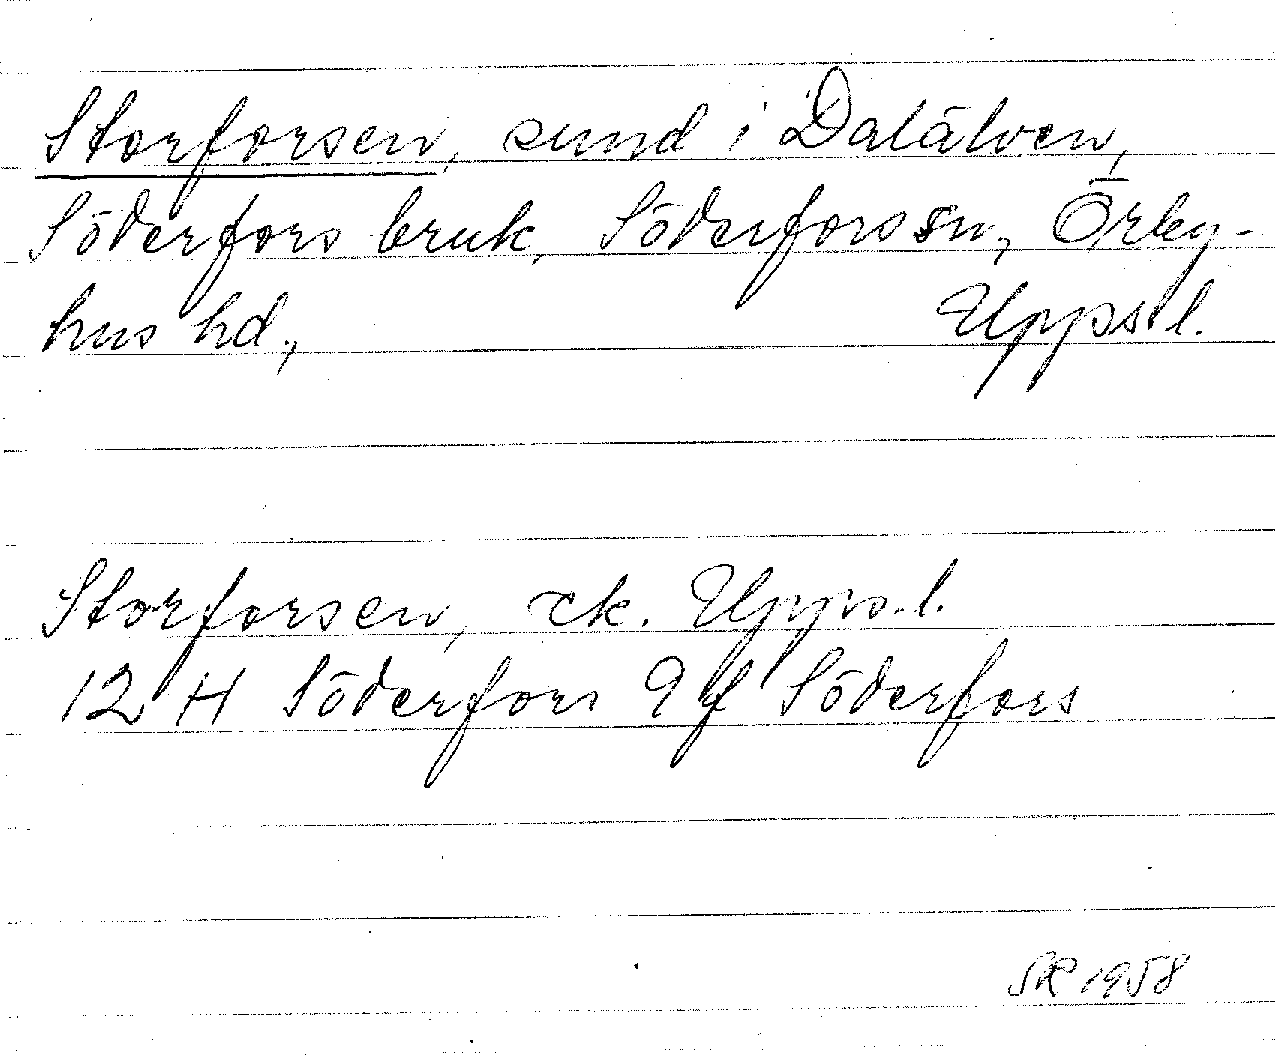 Storforsen, sund i Dalälven,
Söderfors bruk, Söderfors sn, Örby-
hus hd., Upps. l.
Storforsen, ek. Upps. l.
12 H Söderfors 9 f Söderfors
SR 1958